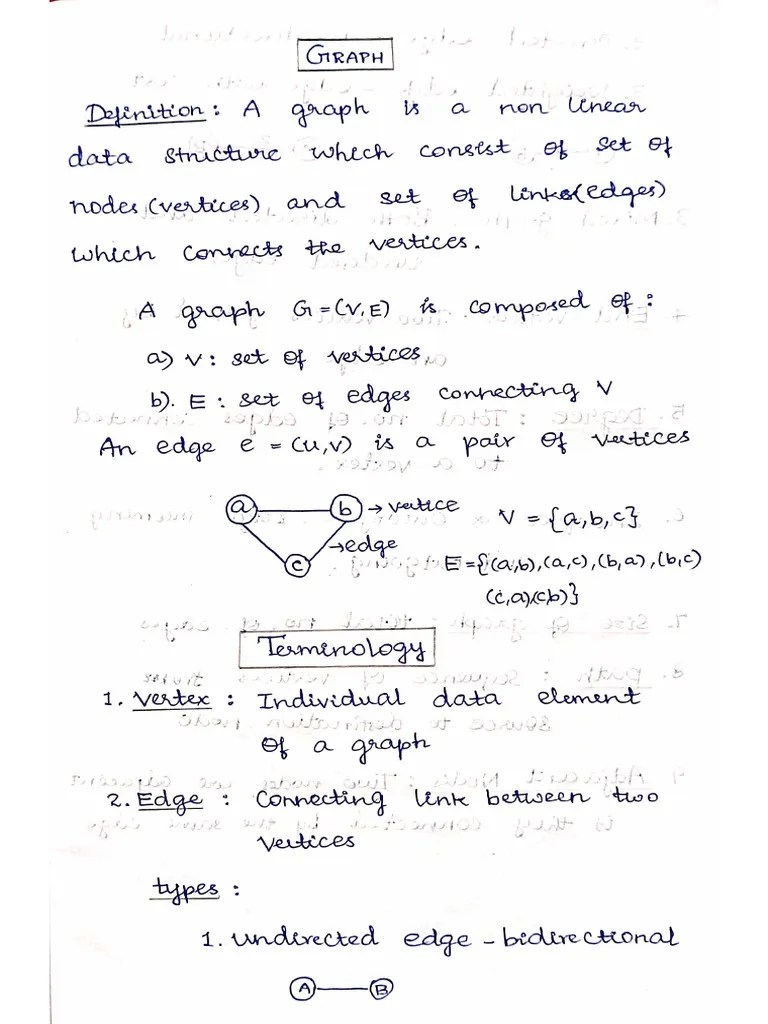 GRAPH
Definition: A graph is a non linear
data structure which consist of set of
nodes(vertices) and set of links(edges)
which connects the vertices.
A graph G=(V,E) is composed of:
a) V: set of vertices
b). E: set of edges connecting V
An edge e = (u,v) is a pair of vertices
a b → vertice V = {a,b,c}
→edge
c E={(a,b),(a,c),(b,a),(b,c)
(c,a)(c,b)}
Terminology
1. Vertex : Individual data element
of a graph
2. Edge : Connecting link between two
vertices
types :
1. Undirected edge - bidirectional
A B